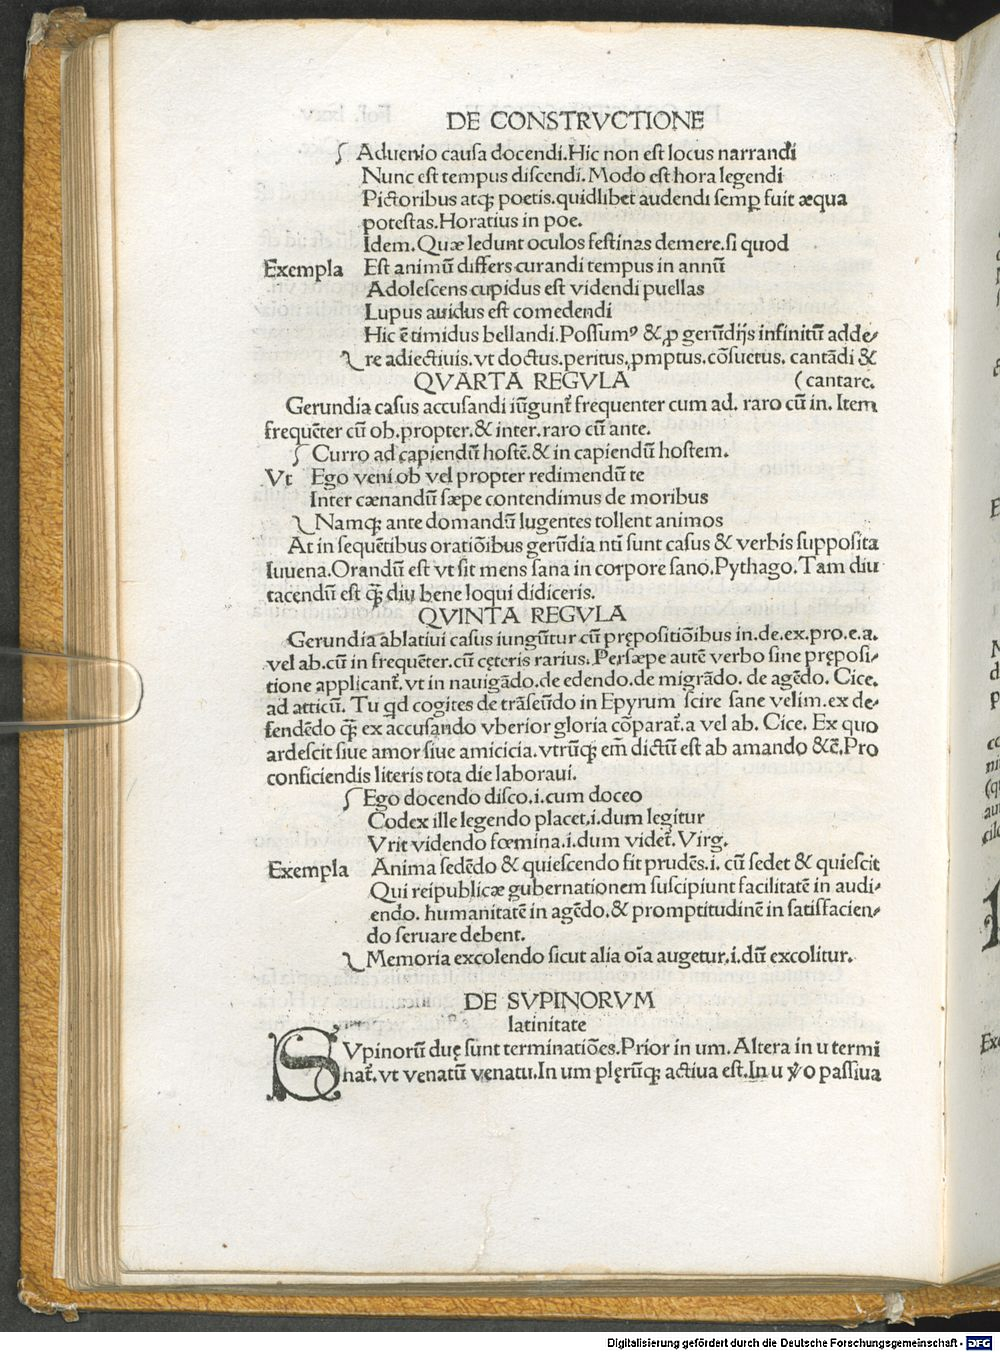 DE CONSTRVCTIONE
Aduenio causa docendi.Hic non est locus narrandi
Nunc est tempus discendi.Modo est hora legendi
Pictoribus atqꝫ poetis.quidlibet audendi semꝑ fuit æqua
potestas.Horatius in poe.
Idem.Quæ ledunt oculos festinas demere.si quod
Exempla Est animū differs curandi tempus in annū
Adolescens cupidus est videndi puellas
Lupus auidus est comedendi
Hic ē timidus bellandi.Possumꝰ & ꝓ gerūdijs infinitū adde⸗
re adiectiuis.vt doctus.peritus,ꝓmptus.cōsuetus. cantādi &
QVARTA REGVLA (cantare.
Gerundia casus accusandi iūgunt᷑ frequenter cum ad. raro cū in. Item
frequēter cū ob.propter.& inter.raro cū ante.
Curro ad capiendū hostē.& in capiendū hostem.
Vt Ego veni.ob vel propter redimendū te
Inter cænandū sæpe contendimus de moribus
Namqꝫ ante domandū lugentes tollent animos
At in sequētibus oratiōibus gerūdia ntī sunt casus & verbis supposita
Iuuena.Orandū est vt sit mens sana in corpore sano.Pythago.Tam diu
tacendū est q̄ꝫ diu bene loqui didiceris.
QVINTA REGVLA
Gerundia ablatiui casus iungūtur cū prępositiōibus in.de.ex.pro.e.a.
vel ab.cū in frequēter.cū cęteris rarius.Persæpe autē verbo sine pręposi⸗
tione applicant᷑.vt in nauigādo.de edendo.de migrādo. de agēdo. Cice.
ad atticū. Tu qd cogites de trāseūdo in Epyrum scire sane velim.ex de⸗
fendēdo q̄ꝫ ex accusando vberior gloria cōparat᷑.a vel ab. Cice. Ex quo
ardescit siue amor siue amicicia.vtrūqꝫ em̄ dictū est ab amando &c̄.Pro
conficiendis literis tota die laboraui.
Ego docendo disco.i.cum doceo
Codex ille legendo placet.i.dum legitur
Vrit videndo fœmina.i.dum videt᷑. Virg.
Exempla Anima sedēdo & quiescendo fit prudēs.i. cū sedet & quiescit
Qui reipublicæ gubernationem suscipiunt facilitatē in audi⸗
endo. humanitatē in agēdo.& promptitudinē in satisfacien⸗
do seruare debent.
Memoria excolendo sicut alia oīa augetur.i.dū excolitur.
DE SVPINORVM
latinitate
SVpinorū duę sunt terminatiōes.Prior in um. Altera in u termi
nat᷑. vt venatū venatu.In um plęrūqꝫ actiua est.In u ỽo passiua
Digitalisierung gefördert durch die Deutsche Forschungsgemeinschaft - DFG